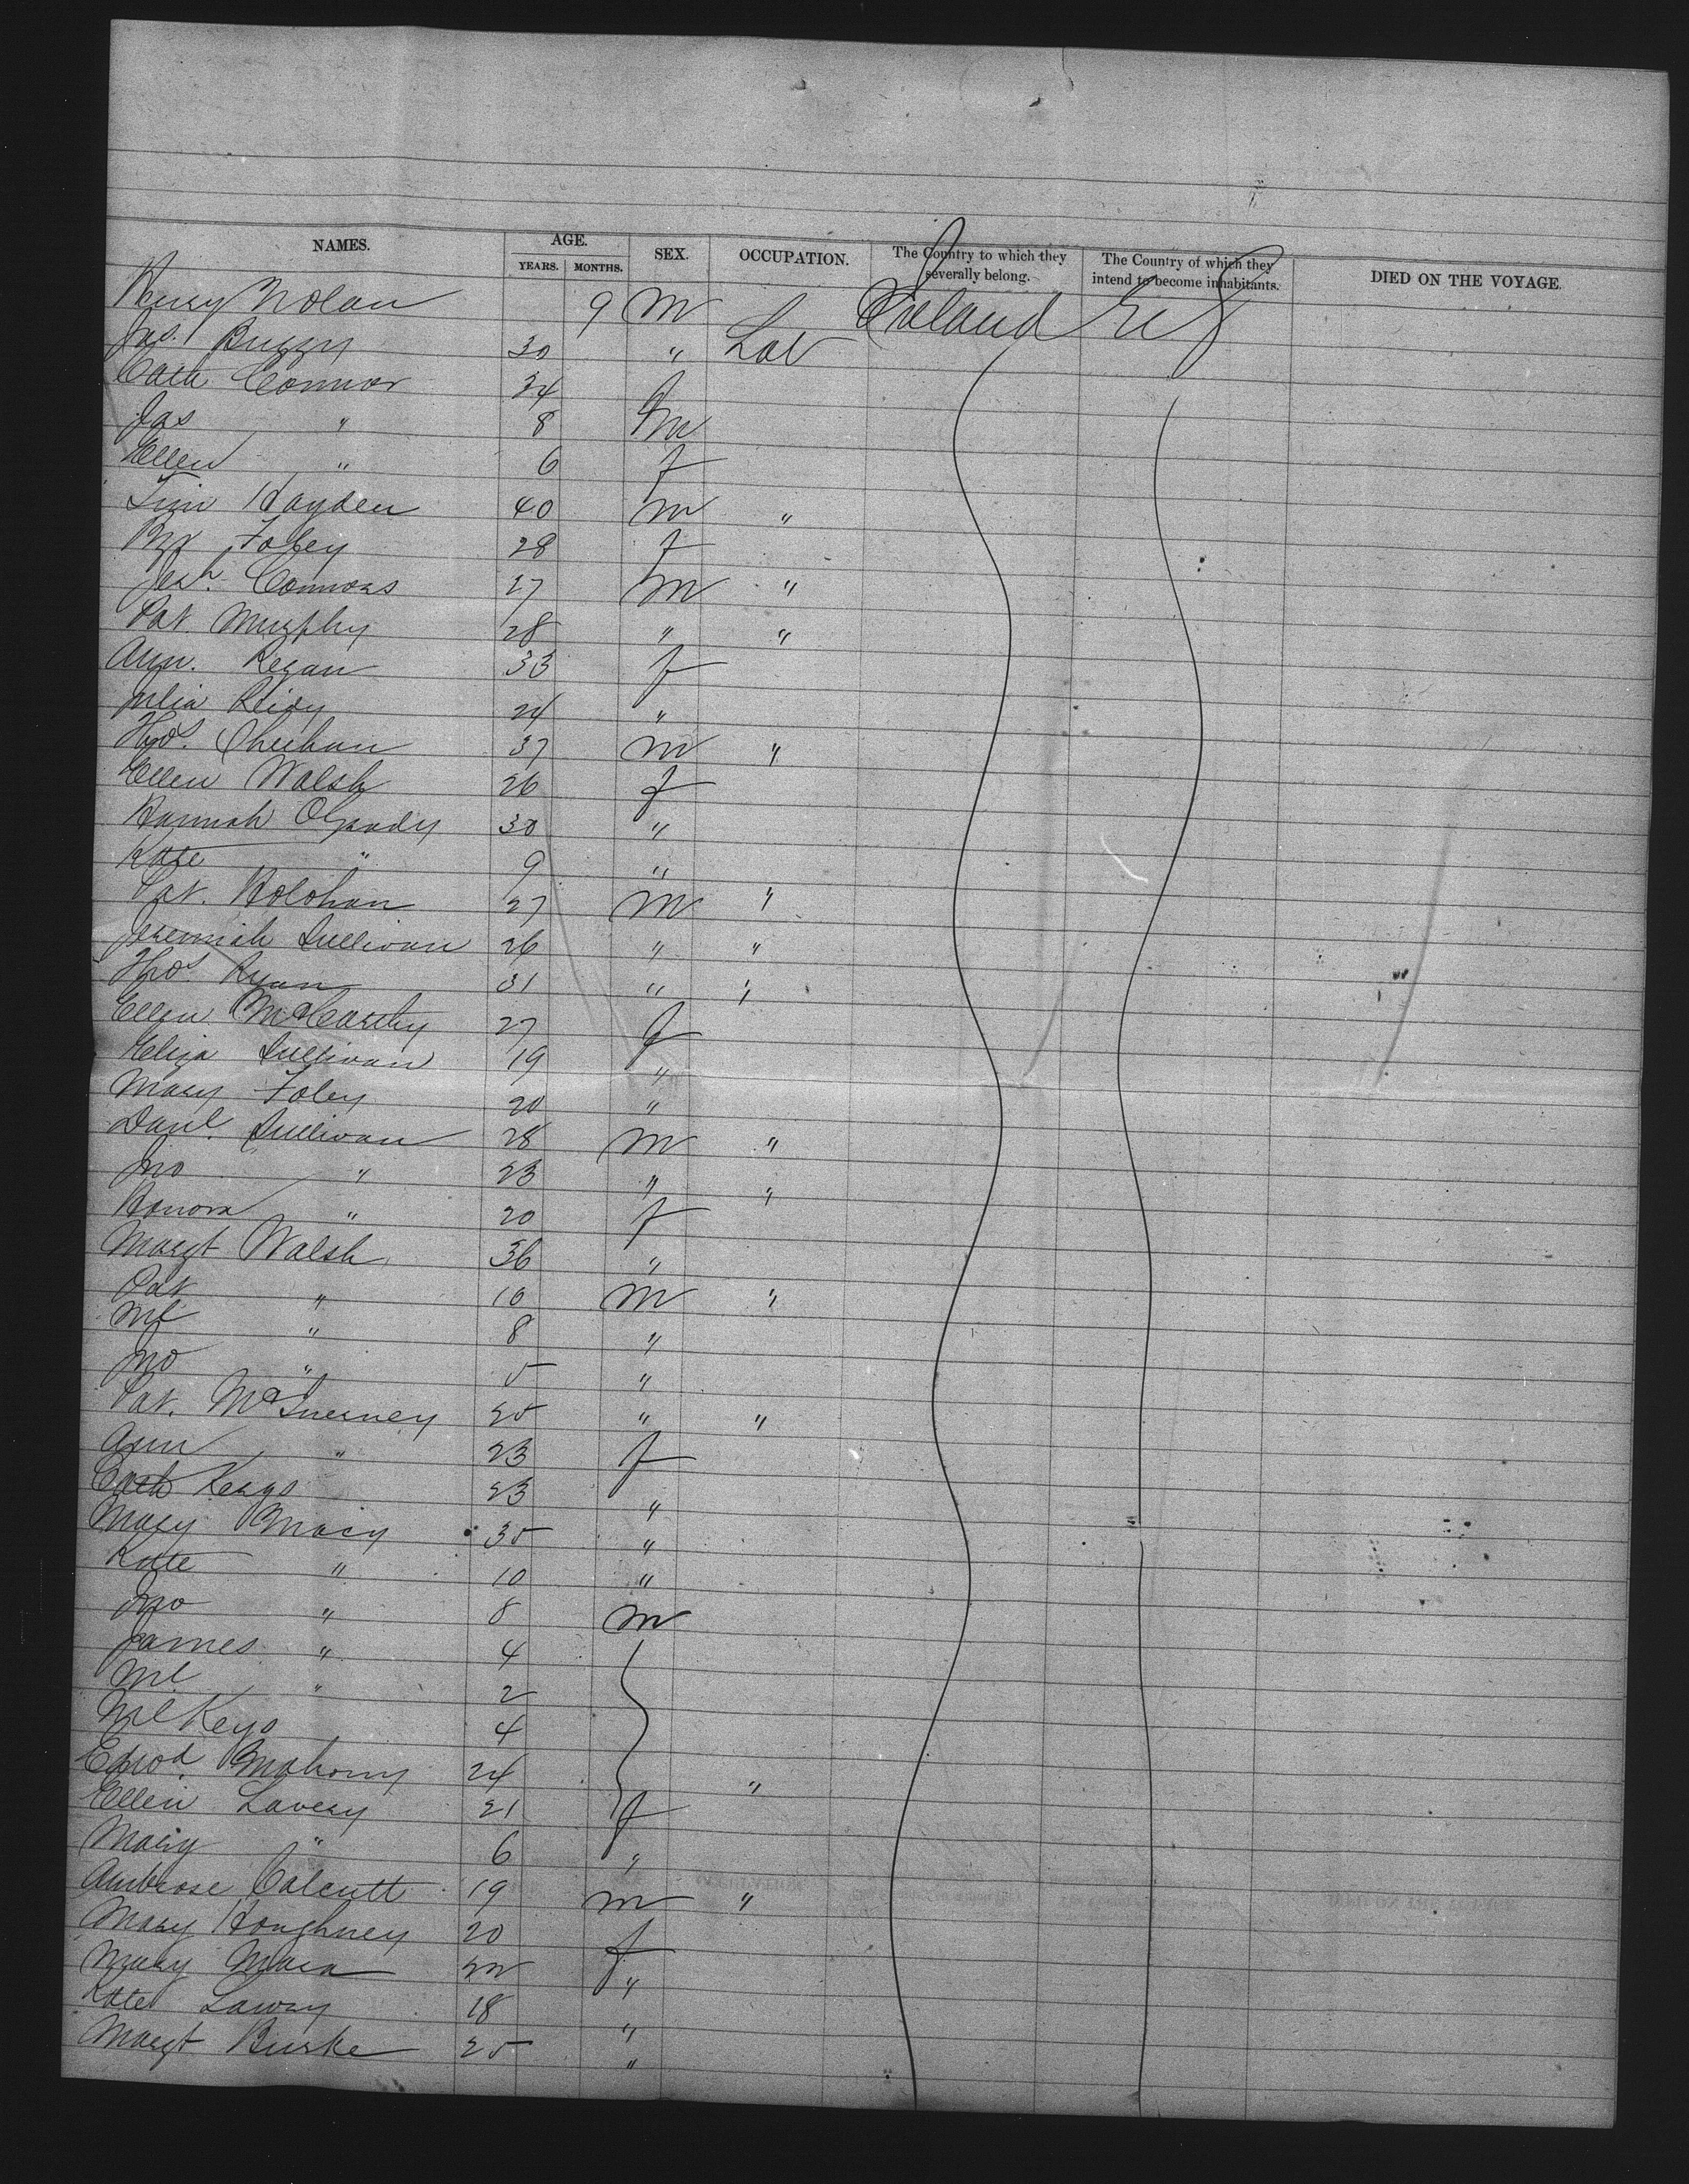 NAMES. AGE. SEX. OCCUPATION. The Country to which they severally belong. The Country of which they intend to become inhabitants. DIED ON THE VOYAGE.
YEARS. MONTHS.
Henry Nolan 9 m Ireland
Jas. Buggy 30 " Lab
Cath Connor 34 f
Jas " 8 m
Ellen " 6 f
Tim Hayden 40 m "
Foley 28 f
Jerh. Connors 27 m "
Pat. Murphy 28 " "
Ann. Regan 33 f
Julia Reidy 24 "
Thos. Sheehan 37 m "
Ellen Walsh 26 f
Hannah OGrady 30 "
Kate " 9 "
Pat. Holohan 27 m "
Jeremiah Sullivan 26 " "
Thos. Ryan 31 " "
Ellen McCarthy 27 f
Eliza Sullivan 19 "
Mary Foley 20 "
Danl. Sullivan 28 m "
Jno " 23 " "
Honora " 20 f
Margt Walsh 36 "
Pat " 10 m "
Ml " 8 "
Jno " 5 "
Pat. McInerney 25 " "
Ann " 23 f
Cath Keays 23 "
Mary 35 "
Kate " 10 "
Jno " 8 m
James " 4
Ml " 2
Ml Keys 4
Edwd. Mahony 24 "
Ellen Lavery 21 f
Mary " 6 "
Ambrose Calcutt 19 m "
Mary Houghney 20 f
Mary Mara 22 "
Kate Lawry 18 "
Margt Burke 25 "